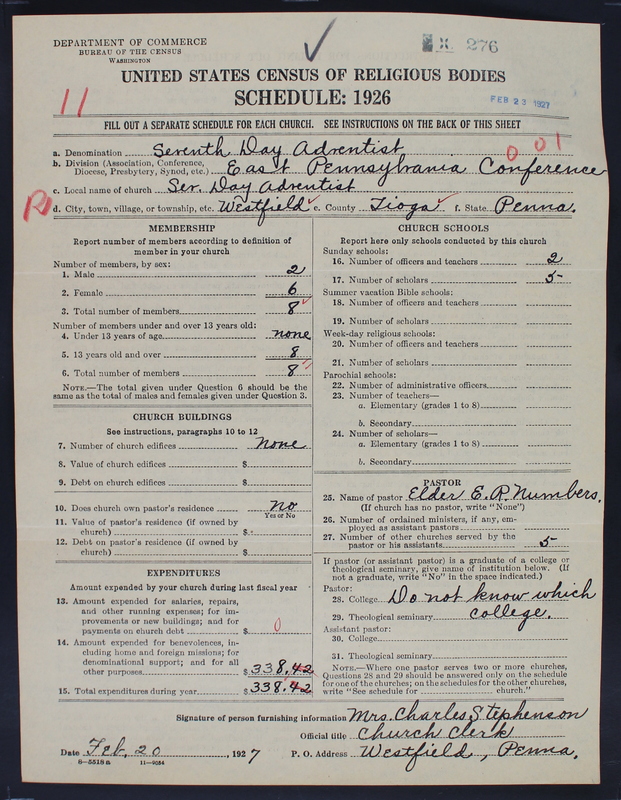 DEPARTMENT OF COMMERCE
BUREAU OF THE CENSUS
WASHINGTON
X. 276
UNITED STATES CENSUS OF RELIGIOUS BODIES
SCHEDULE: 1926
FEB 23 1927
11
FILL OUT A SEPARATE SCHEDULE FOR EACH CHURCH. SEE INSTRUCTIONS ON THE BACK OF THIS SHEET
a. Denomination Seventh Day Adventist
0 0 1
b. Division (Association, Conference, Diocese, Presbytery, Synod, etc.) East Pennsylvania Conference
c. Local name of church Sev. Day Adventist
R
d. City, town, village, or township, etc. Westfield e. County Tioga f. State Penna.
MEMBERSHIP
Report number of members according to definition of member in your church
Number of members, by sex:
1. Male 2
2. Female 6
3. Total number of members 8
Number of members under and over 13 years old:
4. Under 13 years of age none
5. 13 years old and over 8
6. Total number of members 8
NOTE.—The total given under Question 6 should be the same as the total of males and females given under Question 3.
CHURCH BUILDINGS
See instructions, paragraphs 10 to 12
7. Number of church edifices none
8. Value of church edifices $
9. Debt on church edifices $
10. Does church own pastor's residence no
Yes or No
11. Value of pastor's residence (if owned by church) $
12. Debt on pastor's residence (if owned by church) $
EXPENDITURES
Amount expended by church during last fiscal year
13. Amount expended for salaries, repairs, and other running expenses; for improvements or new buildings; and for payments on church debt $ 0
14. Amount expended for benevolences, including home and foreign missions; for denominational support; and for all other purposes $338.42
15. Total expenditures during year $338.42
CHURCH SCHOOLS
Report here only schools conducted by this church
Sunday schools:
16. Number of officers and teachers 2
17. Number of scholars 5
Summer vacation Bible schools:
18. Number of officers and teachers
19. Number of scholars
Week-day religious schools:
20. Number of officers and teachers
21. Number of scholars
Parochial schools:
22. Number of administrative officers
23. Number of teachers—
a. Elementary (grades 1 to 8)
b. Secondary
24. Number of scholars—
a. Elementary (grades 1 to 8)
b. Secondary
PASTOR
25. Name of pastor Elder E. R. Numbers.
(If church has no pastor, write "None")
26. Number of ordained ministers, if any, employed as assistant pastors
27. Number of other churches served by the pastor or his assistants 5
If pastor (or assistant pastor) is a graduate of a college or theological seminary, give name of institution below. (If not a graduate, write "No" in the space indicated.)
Pastor:
28. College Do not know which
29. Theological seminary college.
Assistant pastor:
30. College
31. Theological seminary
NOTE.—Where one pastor serves two or more churches, Questions 28 and 29 should be answered only on the schedule for one of the churches; on the schedules for the other churches, write "See schedule for church."
Signature of person furnishing information Mrs. Charles Stephenson
Official title Church Clerk
Date Feb, 20, 1927 P. O. Address Westfield, Penna.
8-5518a 11-9054